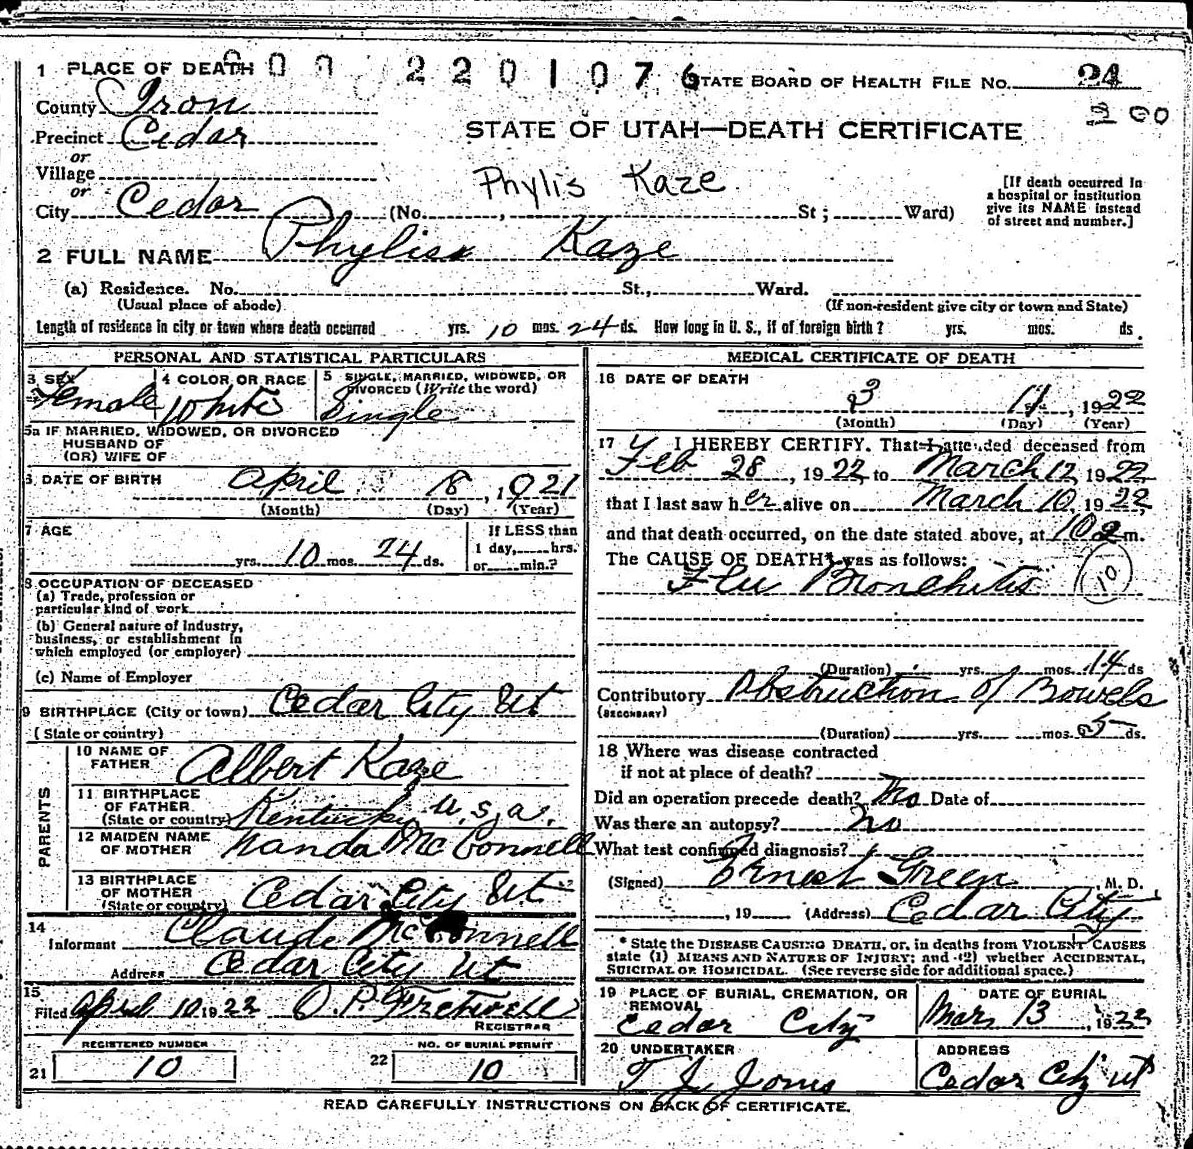 1 PLACE OF DEATH 000 2201076 STATE BOARD OF HEALTH FILE NO. 24
County Iron
3 00
Precinct Cedar
STATE OF UTAH—DEATH CERTIFICATE
or
Village
Phylis Kaze
or
City Cedar (No. , St; Ward)
[If death occurred in
a hospital or institution
give its NAME instead
of street and number.]
2 FULL NAME Phyliss Kaze
(a) Residence. No. St., Ward.
(Usual place of abode) (If non-resident give city or town and State)
Length of residence in city or town where death occurred yrs. 10 mos. 24 ds. How long in U. S., if of foreign birth? yrs. mos. ds.
PERSONAL AND STATISTICAL PARTICULARS
3 SEX 4 COLOR OR RACE 5 SINGLE, MARRIED, WIDOWED, OR
DIVORCED (Write the word)
Female White Single
5a IF MARRIED, WIDOWED, OR DIVORCED
HUSBAND OF
(OR) WIFE OF
6 DATE OF BIRTH April 18, 1921
(Month) (Day) (Year)
7 AGE If LESS than
yrs. 10 mos. 24 ds. 1 day, hrs.
or min.?
8 OCCUPATION OF DECEASED
(a) Trade, profession or
particular kind of work
(b) General nature of Industry,
business, or establishment in
which employed (or employer)
(c) Name of Employer
9 BIRTHPLACE (City or town) Cedar City Ut
(State or country)
PARENTS
10 NAME OF
FATHER Albert Kaze
11 BIRTHPLACE
OF FATHER
(State or country) Kentucky U.S.A.
12 MAIDEN NAME
OF MOTHER Wanda McConnell
13 BIRTHPLACE
OF MOTHER
(State or country) Cedar City Ut
14
Informant Claude McConnell
Address Cedar City Ut
15
Filed April 10 1922 O. P. Fretwell
REGISTRAR
REGISTERED NUMBER NO. OF BURIAL PERMIT
21 10 22 10
MEDICAL CERTIFICATE OF DEATH
16 DATE OF DEATH
3 , 1922
(Month) (Day) (Year)
17 I HEREBY CERTIFY, That I attended deceased from
Feb 28, 1922 to March 12, 1922
that I last saw her alive on March 10, 1922,
and that death occurred, on the date stated above, at 10 m.
The CAUSE OF DEATH* was as follows:
Flu Bronchitis 10
(Duration) yrs. mos. 14 ds
Contributory Obstruction of Bowels
(SECONDARY)
(Duration) yrs. mos. 5 ds.
18 Where was disease contracted
if not at place of death?
Did an operation precede death? No Date of
Was there an autopsy? No
What test confirmed diagnosis?
(Signed) Ernest Green, M. D.
, 19 (Address) Cedar City
* State the DISEASE CAUSING DEATH, or, in deaths from VIOLENT CAUSES
state (1) MEANS AND NATURE OF INJURY; and (2) whether ACCIDENTAL,
SUICIDAL OR HOMICIDAL. (See reverse side for additional space.)
19 PLACE OF BURIAL, CREMATION, OR
REMOVAL
Cedar City
DATE OF BURIAL
Mar 13, 1922
20 UNDERTAKER
T J Jones
ADDRESS
Cedar City Ut
READ CAREFULLY INSTRUCTIONS ON BACK OF CERTIFICATE.